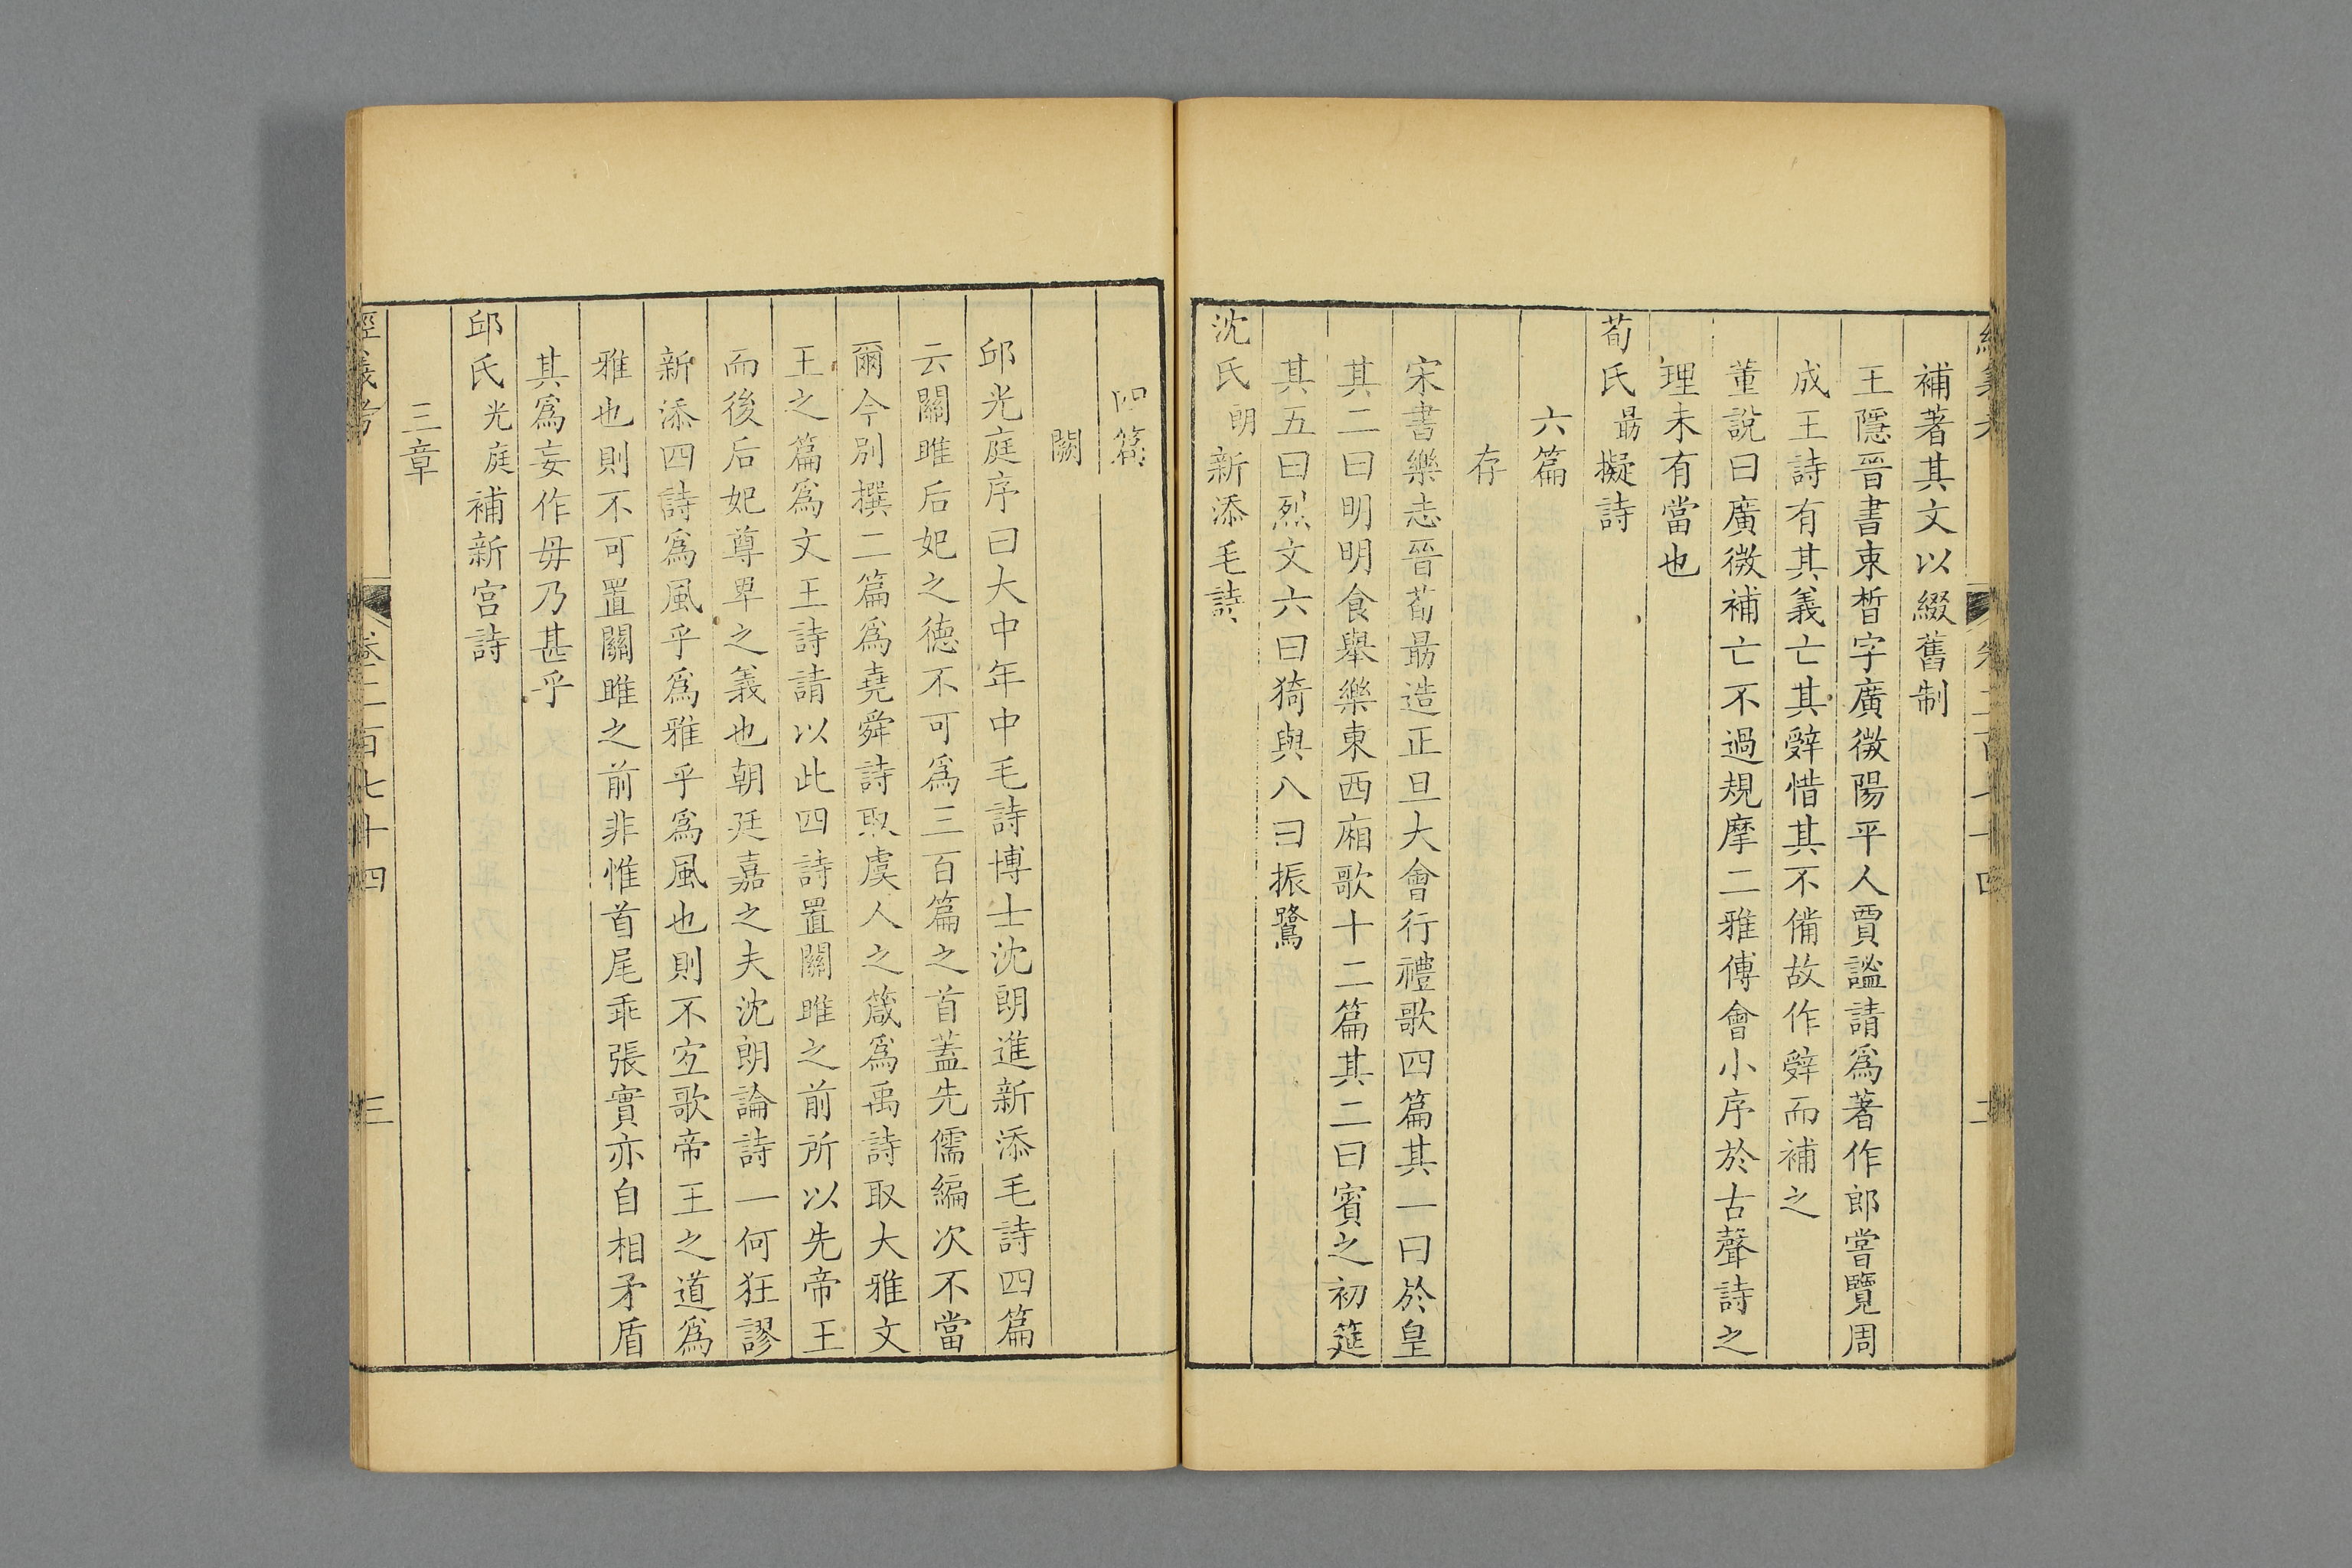 補著其文以綴舊制
王隱晉書束晳字廣微陽平人賈謐請爲著作郎嘗覽周
成王詩有其義亡其辭惜其不備故作辭而補之
董說曰廣微補亡不過規摩二雅傅會小序於古聲詩之
理未有當也
荀氏勗擬詩
六篇
存
宋書樂志晉荀勗造正旦大會行禮歌四篇其一曰於皇
其二曰明明食舉樂東西廂歌十二篇其二曰賓之初筵
其五曰烈文六曰猗與八曰振鷺
沈氏朗新添毛詩
四篇
闕
邱光庭序曰大中年中毛詩博士沈朗進新添毛詩四篇
云關雎后妃之德不可爲三百篇之首蓋先儒編次不當
爾今別撰二篇爲堯舜詩取虞人之箴爲禹詩取大雅文
王之篇爲文王詩請以此四詩置關雎之前所以先帝王
而後后妃尊卑之義也朝廷嘉之夫沈朗論詩一何狂謬
新添四詩爲風乎爲雅乎爲風也則不宐歌帝王之道爲
雅也則不可置關雎之前非惟首尾乖張實亦自相矛盾
其爲妄作毋乃甚乎
邱氏光庭補新宮詩
三章
經義考 卷二百七十四 三